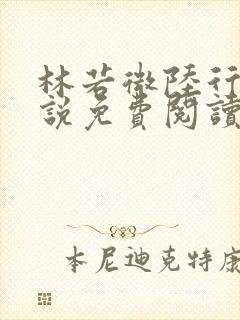 林若微陸行
說免費閱讀
本尼迪克特康